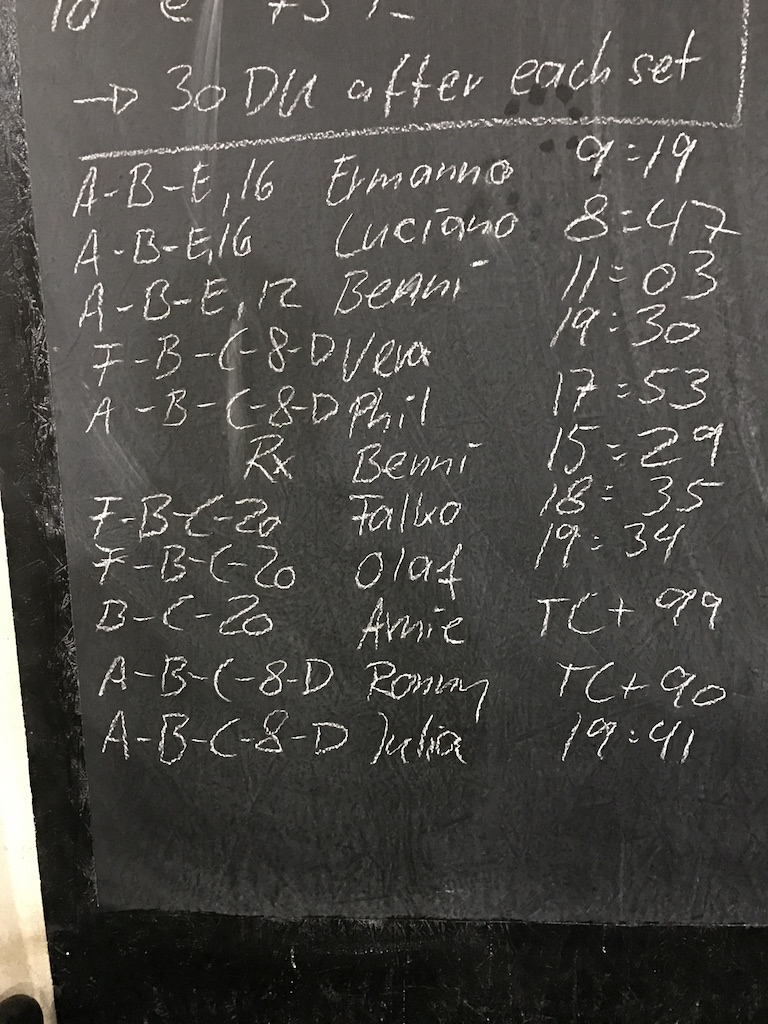 10 @ 75%
→ 30 DU after each set
A-B-E, 16 Ermanno 9:19
A-B-E, 16 Luciano 8:47
A-B-E, 12 Benni 11:03
F-B-C-8-D Vera 19:30
A-B-C-8-D Phil 17:53
Rx Benni 15:29
F-B-C-20 Falko 18:35
F-B-C-20 Olaf 19:34
B-C-20 Arnie TC+99
A-B-C-8-D Ronny TC+90
A-B-C-8-D Julia 19:41